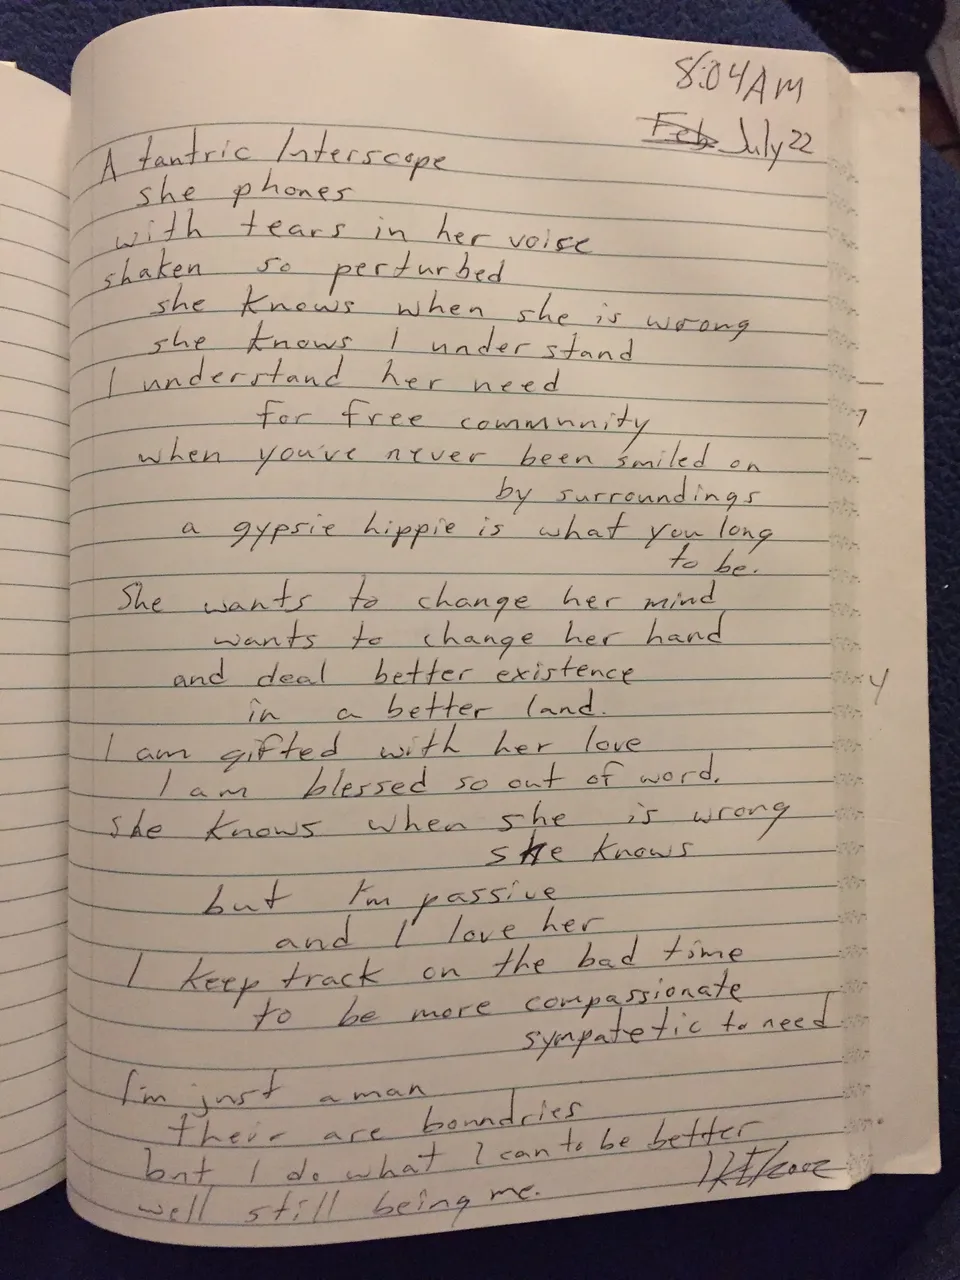 8:04AM
Feb July 22
A tantric Interscope
she phones
with tears in her voise
shaken so perturbed
she knows when she is wrong
she knows I understand
I understand her need
for free community
when you've never been smiled on
by surroundings
a gypsie hippie is what you long
to be.
She wants to change her mind
wants to change her hand
and deal better existence
in a better land.
I am gifted with her love
I am blessed so out of word.
She knows when she is wrong
she knows
but I'm passive
and I love her
I keep track on the bad time
to be more compassionate
sympatetic to need
I'm just a man
their are boundries
but I do what I can to be better
well still being me.